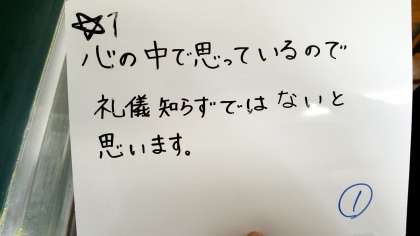 ☆1
心の中で思っているので
礼儀知らずではないと
思います。
①